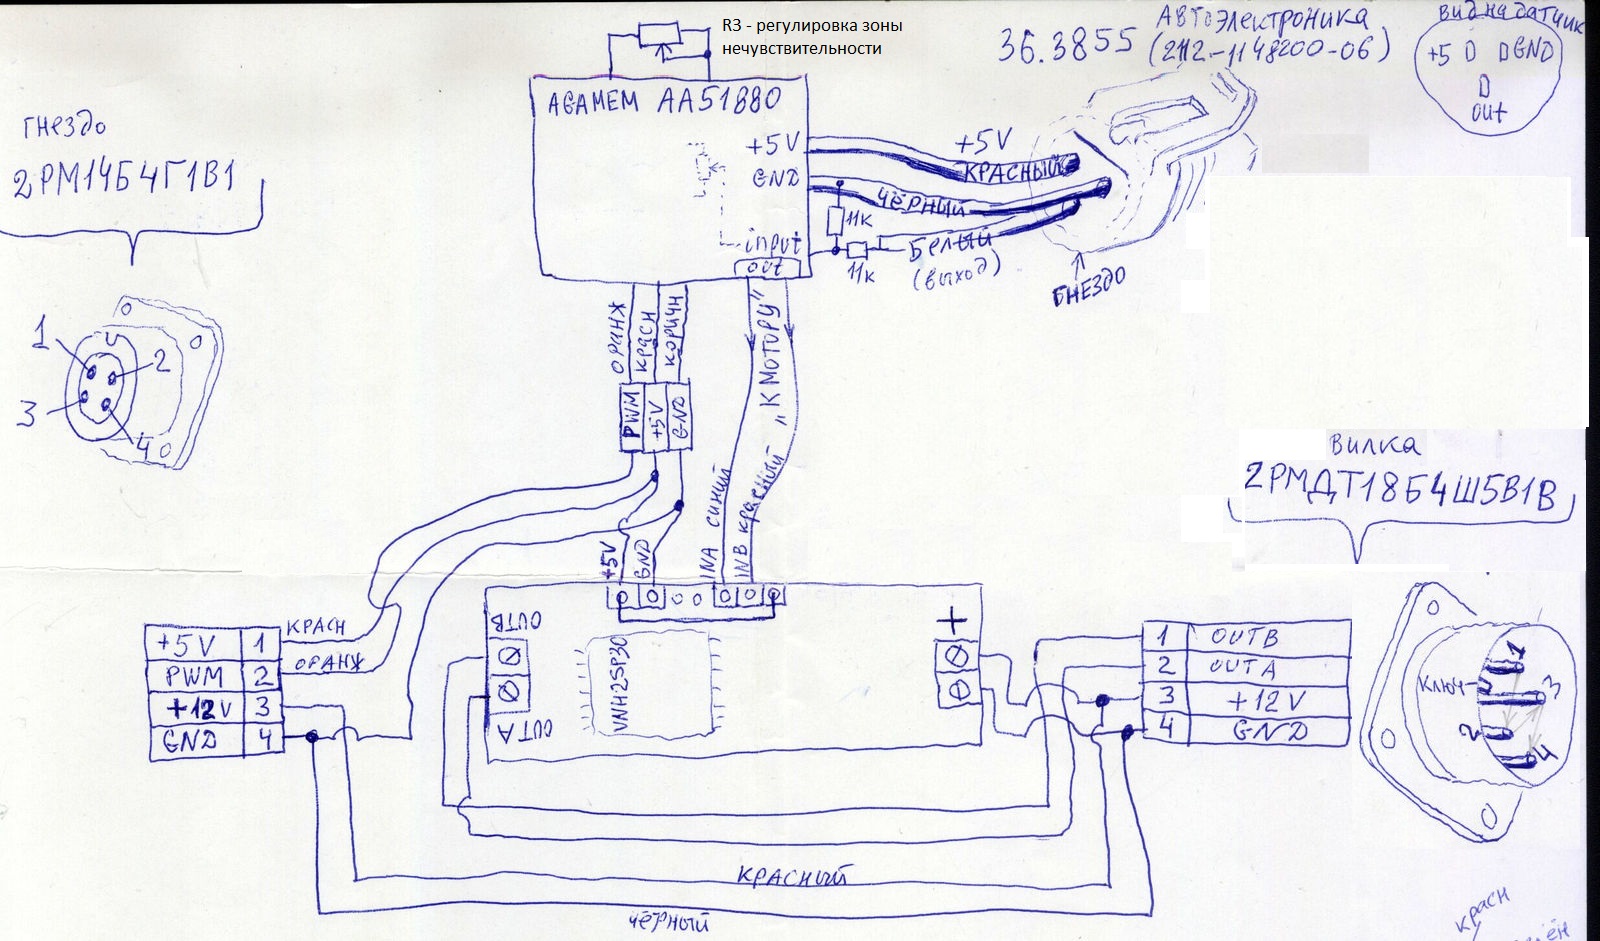 R3 - регулировка зоны
нечувствительности
Автоэлектроника
36.3855 (2112-1148200-06)
вид на датчик
+5 GND
out
AGAMEM AA51880
+5V
GND
input
out
+5V
КРАСНЫЙ
ЧЁРНЫЙ
11к
11к
БЕЛЫЙ
(выход)
ГНЕЗДО
гнездо
2РМ14Б4Г1В1
1
2
3
4
ОРАНЖ
КРАСН
КОРИЧН
PWM
+5V
GND
"К МОТОРУ"
+5V
GND
INA синий
INB красный
вилка
2РМДТ18Б4Ш5В1В
+5V 1 КРАСН
PWM 2 ОРАНЖ
+12V 3
GND 4
OUTB
OUTA
VNH2SP30
+
1 OUTB
2 OUTA
3 +12V
4 GND
КЛЮЧ
1
3
2
4
КРАСНЫЙ
ЧЁРНЫЙ
красн